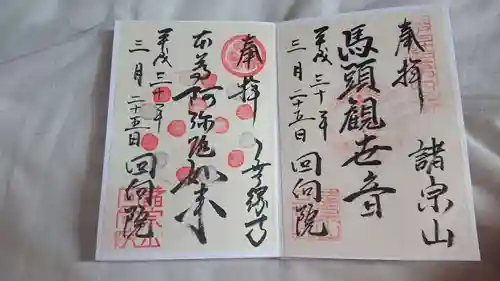 奉拝
諸宗山
馬頭観世音
平成三十年
三月二十五日
回向院
奉拝
本尊阿弥陀如来
平成三十年
三月二十五日
回向院